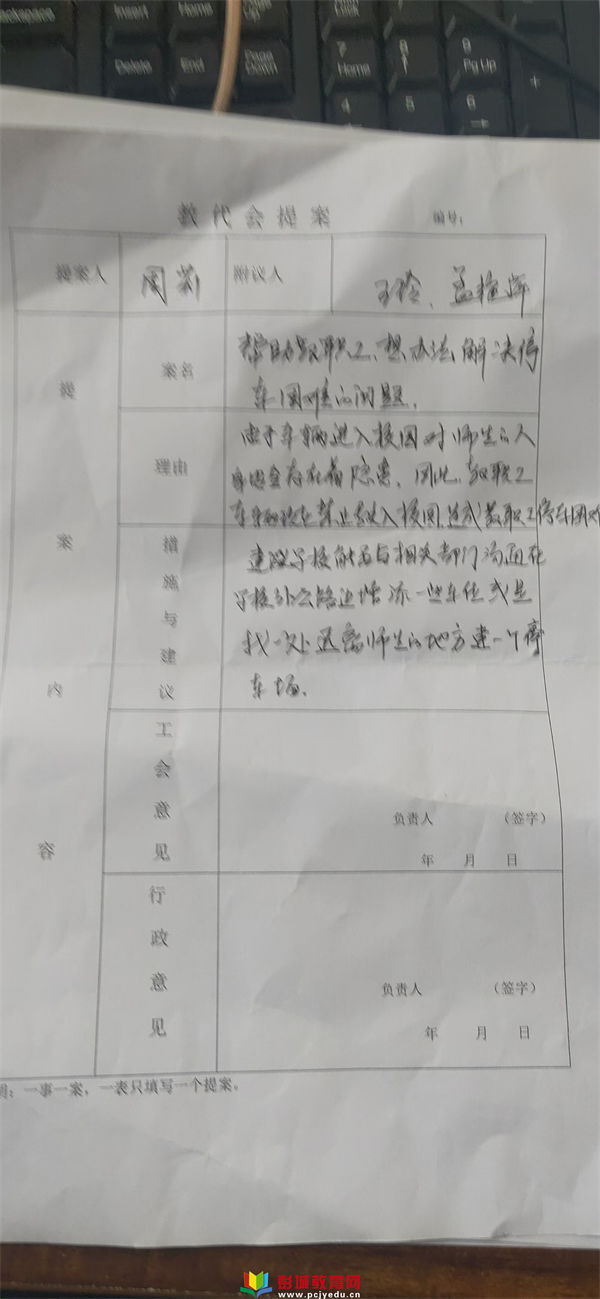 Insert
Home
Page Up
Lock
7
Home
8
9
Pg Up
Delete
End
Page Down
4
5
6
+
教代会提案
编号:
提案人
周莉
附议人
王玲、孟
提案内容
案名
帮助教职工想办法解决停
车困难的问题。
理由
由于车辆进入校园对师生的人
身安全存在着隐患,因此,教职工
车辆现在禁止驶入校园,造成教职工停车困难
措施与建议
建议学校能否与相关部门沟通在
学校外公路边增添一些车位或是
找一处远离师生的地方建一个停
车场。
工会意见
负责人 (签字)
年 月 日
行政意见
负责人 (签字)
年 月 日
明:一事一案,一表只填写一个提案。
彭城教育网
www.pcjyedu.cn